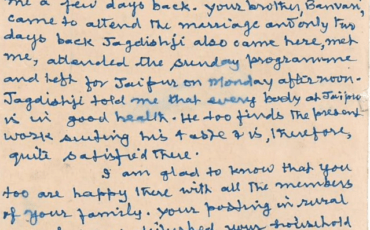 me a few days back. your brother, Banwari,
came to attend the marriage and only two
days back Jagdishji also came here, met
me, attended the sunday programme
and left for Jaipur on Monday afternoon.
Jagdishji told me that every body at Jaipur
is in good health. He too finds the present
work suiting his taste & is, therefore,
quite satisfied there.
I am glad to know that you
too are happy there with all the members
of your family. your posting in rural
your household